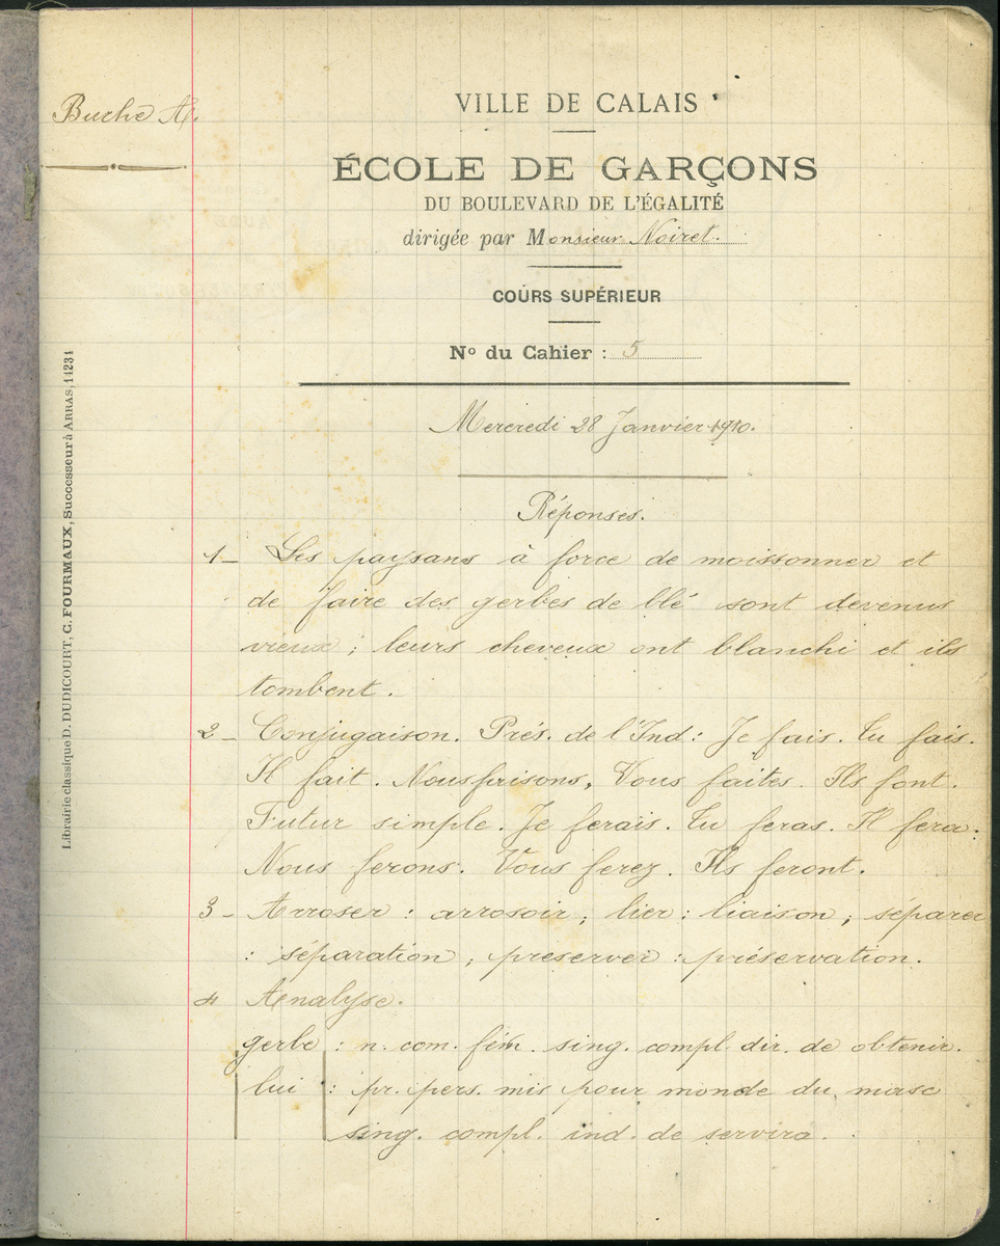 Buche A.
VILLE DE CALAIS
ÉCOLE DE GARÇONS
DU BOULEVARD DE L'ÉGALITÉ
dirigée par Monsieur Noiret.
COURS SUPÉRIEUR
No du Cahier : 5
Mercredi 28 Janvier 1910.
Réponses.
1_ Les paysans à force de moissonner et
de faire des gerbes de blé sont devenus
vieux ; leurs cheveux ont blanchi et ils
tombent.
2_ Conjugaison. Prés. de l'Ind : Je fais. Tu fais.
Il fait. Nous faisons, Vous faites. Ils font.
Futur simple. Je ferais. Tu feras. Il fera.
Nous ferons. Vous ferez. Ils feront.
3_ Arroser : arrosoir ; lier : liaison ; séparer
: séparation ; préserver : préservation.
4 Analyse.
gerbe : n. com. fém. sing. compl. dir. de obtenir.
lui : pr. pers. mis pour monde du masc
sing. compl. ind. de servira.
Librairie classique D. DUDICOURT, C. FOURMAUX, Successeur à ARRAS, 14231